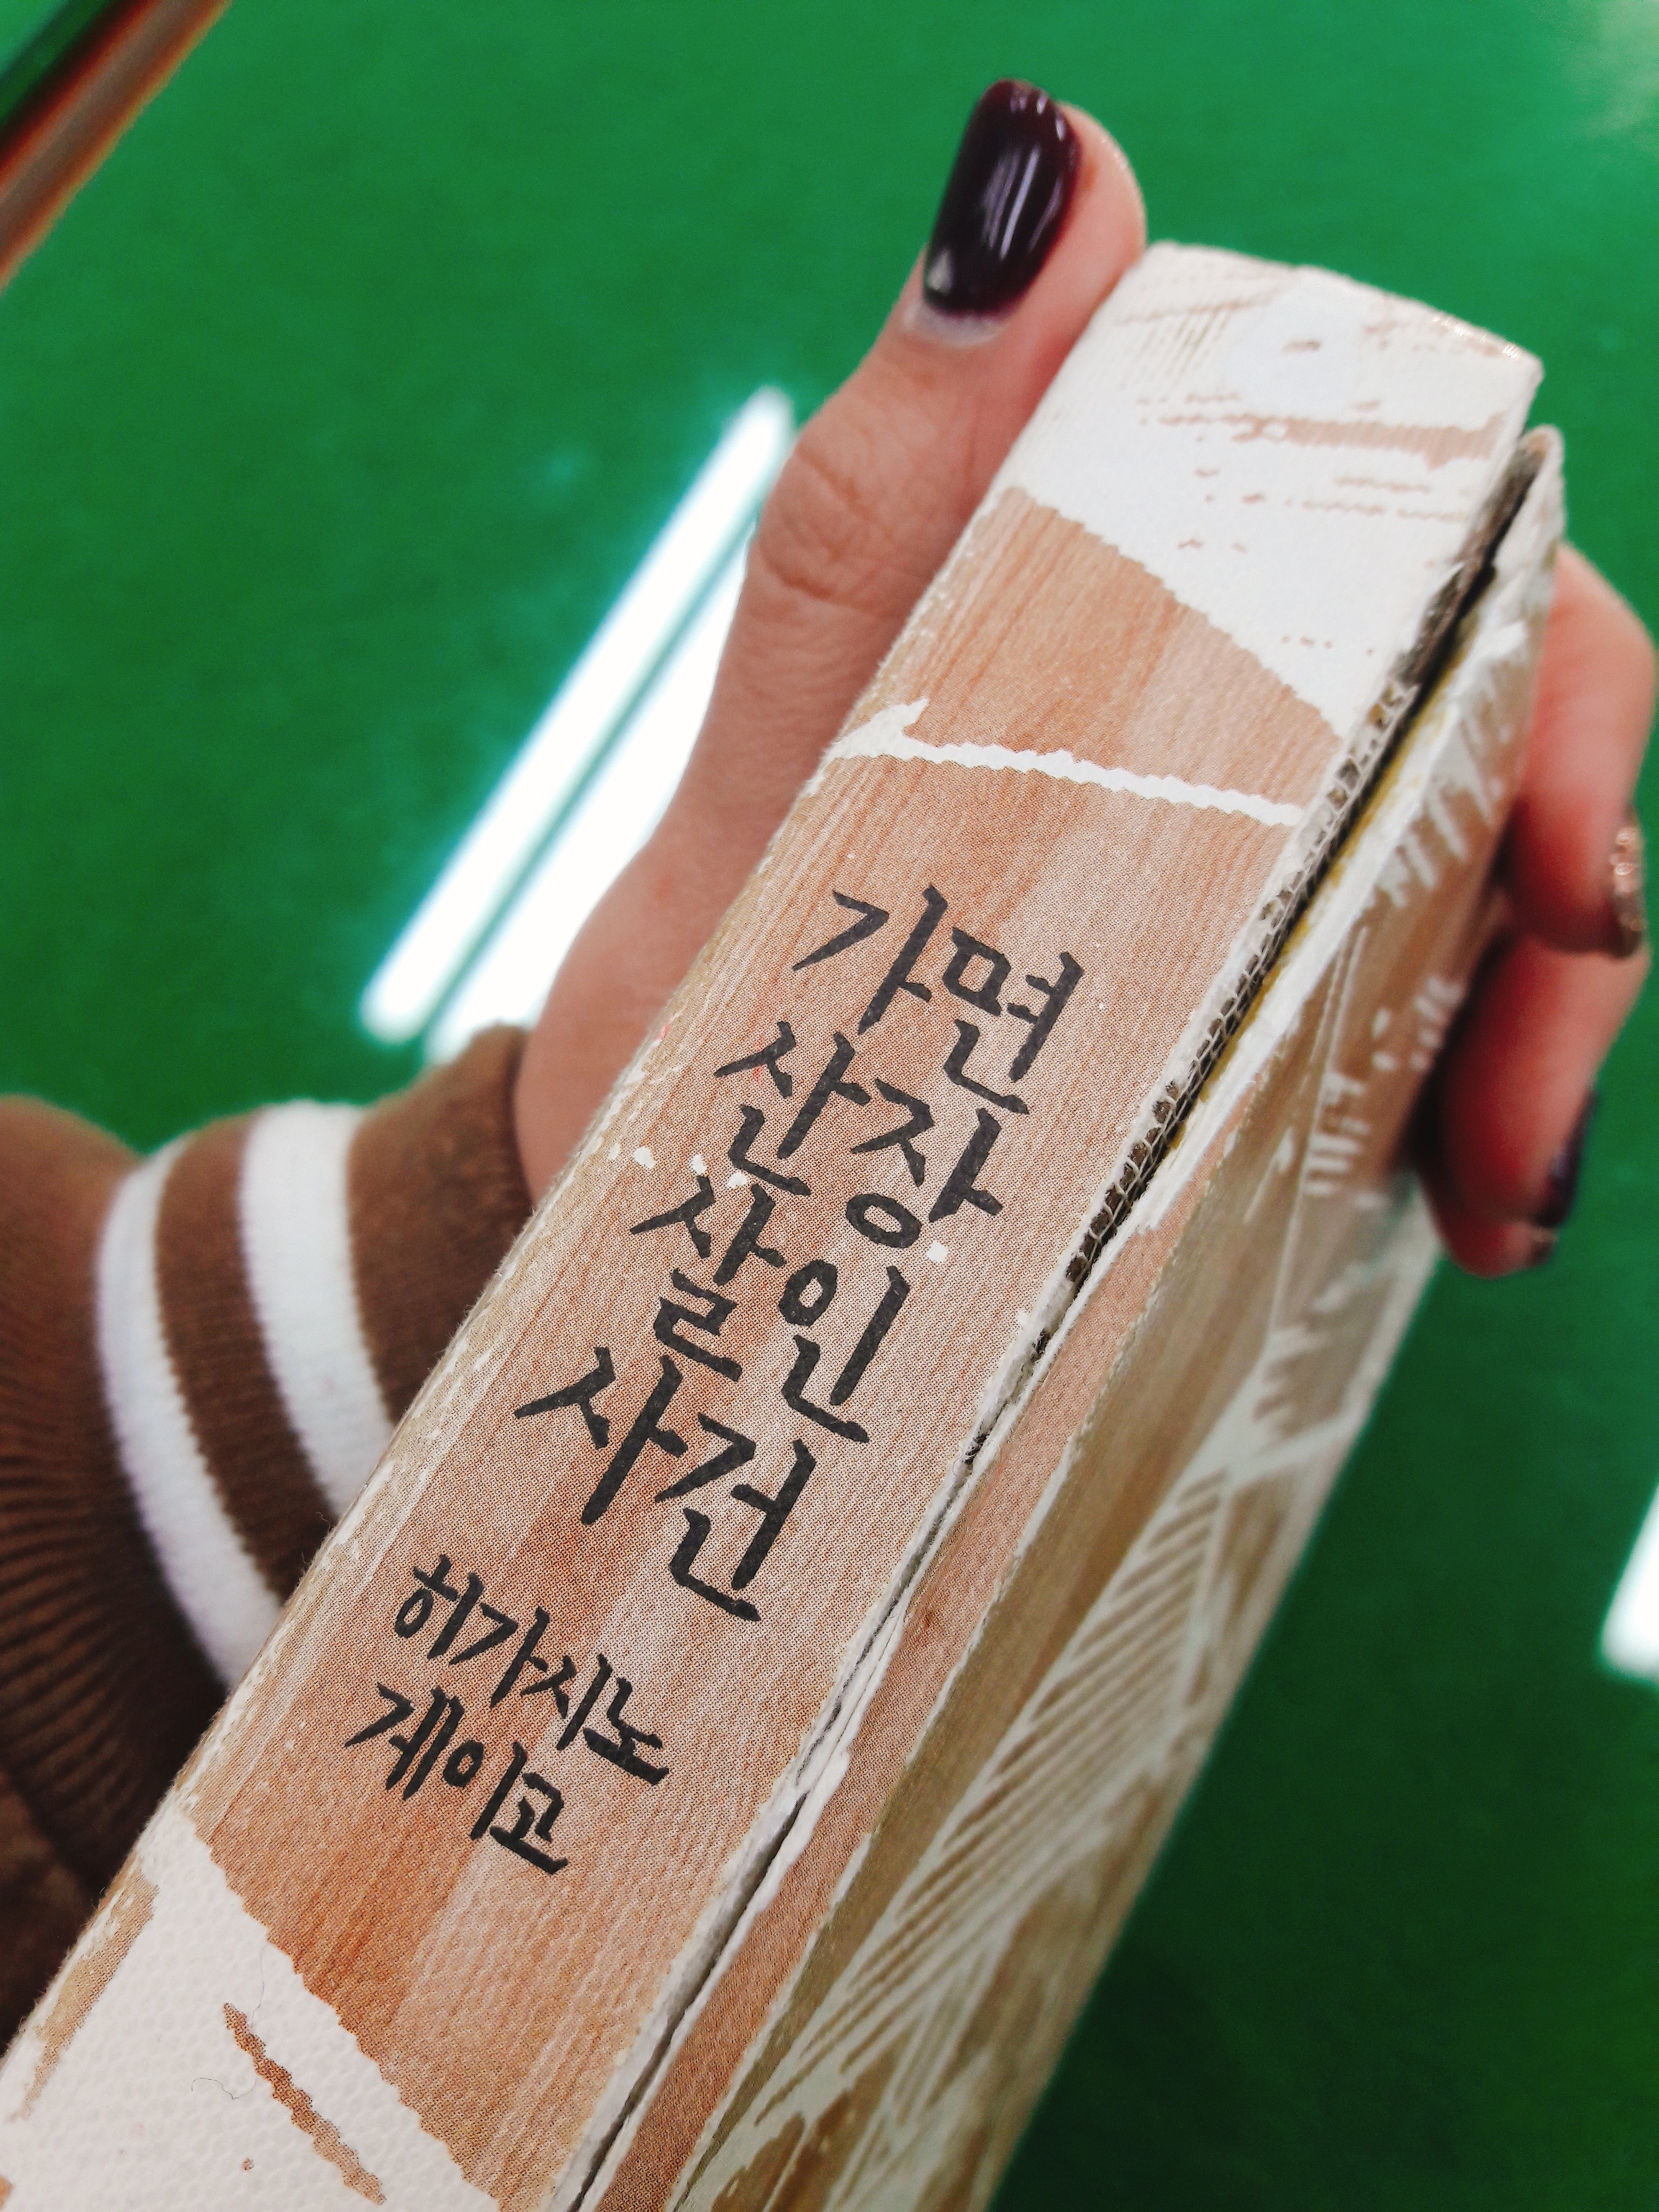 가면
산장
살인
사건
히가시노
게이고